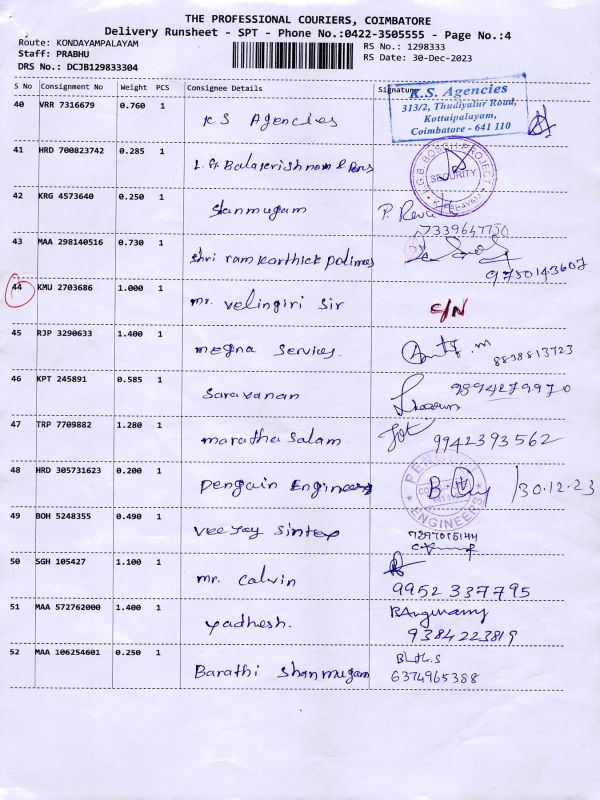 THE PROFESSIONAL COURIERS, COIMBATORE
Delivery Runsheet - SPT - Phone No.:0422-3505555 - Page No.:4
Route: KONDAYAMPALAYAM RS No.: 1298333
Staff: PRABHU RS Date: 30-Dec-2023
DRS No.: DCJB129833304
S No Consignment No Weight PCS Consignee Details Signature
K.S. Agencies
313/2, Thudiyalur Road,
Kottaipalayam,
Coimbatore - 641 110
40 VRR 7316679 0.760 1 K S Agencies
41 HRD 700823742 0.285 1 L.G. Balakrishnan & Bros
SECURITY
42 KRG 4573640 0.250 1 Shanmugam P. Reva
7339647750
43 MAA 298140516 0.730 1 Shri ram karthick polimes
9750143607
44 KMU 2703686 1.000 1 mr. velingiri sir S/N
45 RJP 3290633 1.400 1 megna services. 8838813723
46 KPT 245891 0.585 1 Saravanan 9894279970
47 TRP 7709882 1.280 1 maratha salam. 9942393562
48 HRD 305731623 0.200 1 Penguin Engineers 30.12.23
ENGINEERS
49 BOH 5248355 0.490 1 Vee Jay Sintex
50 SGH 105427 1.100 1 mr. calvin
9952337795
51 MAA 572762000 1.400 1 yadhesh.
9384223819
52 MAA 106254601 0.250 1 Barathi Shanmugam
6374965388